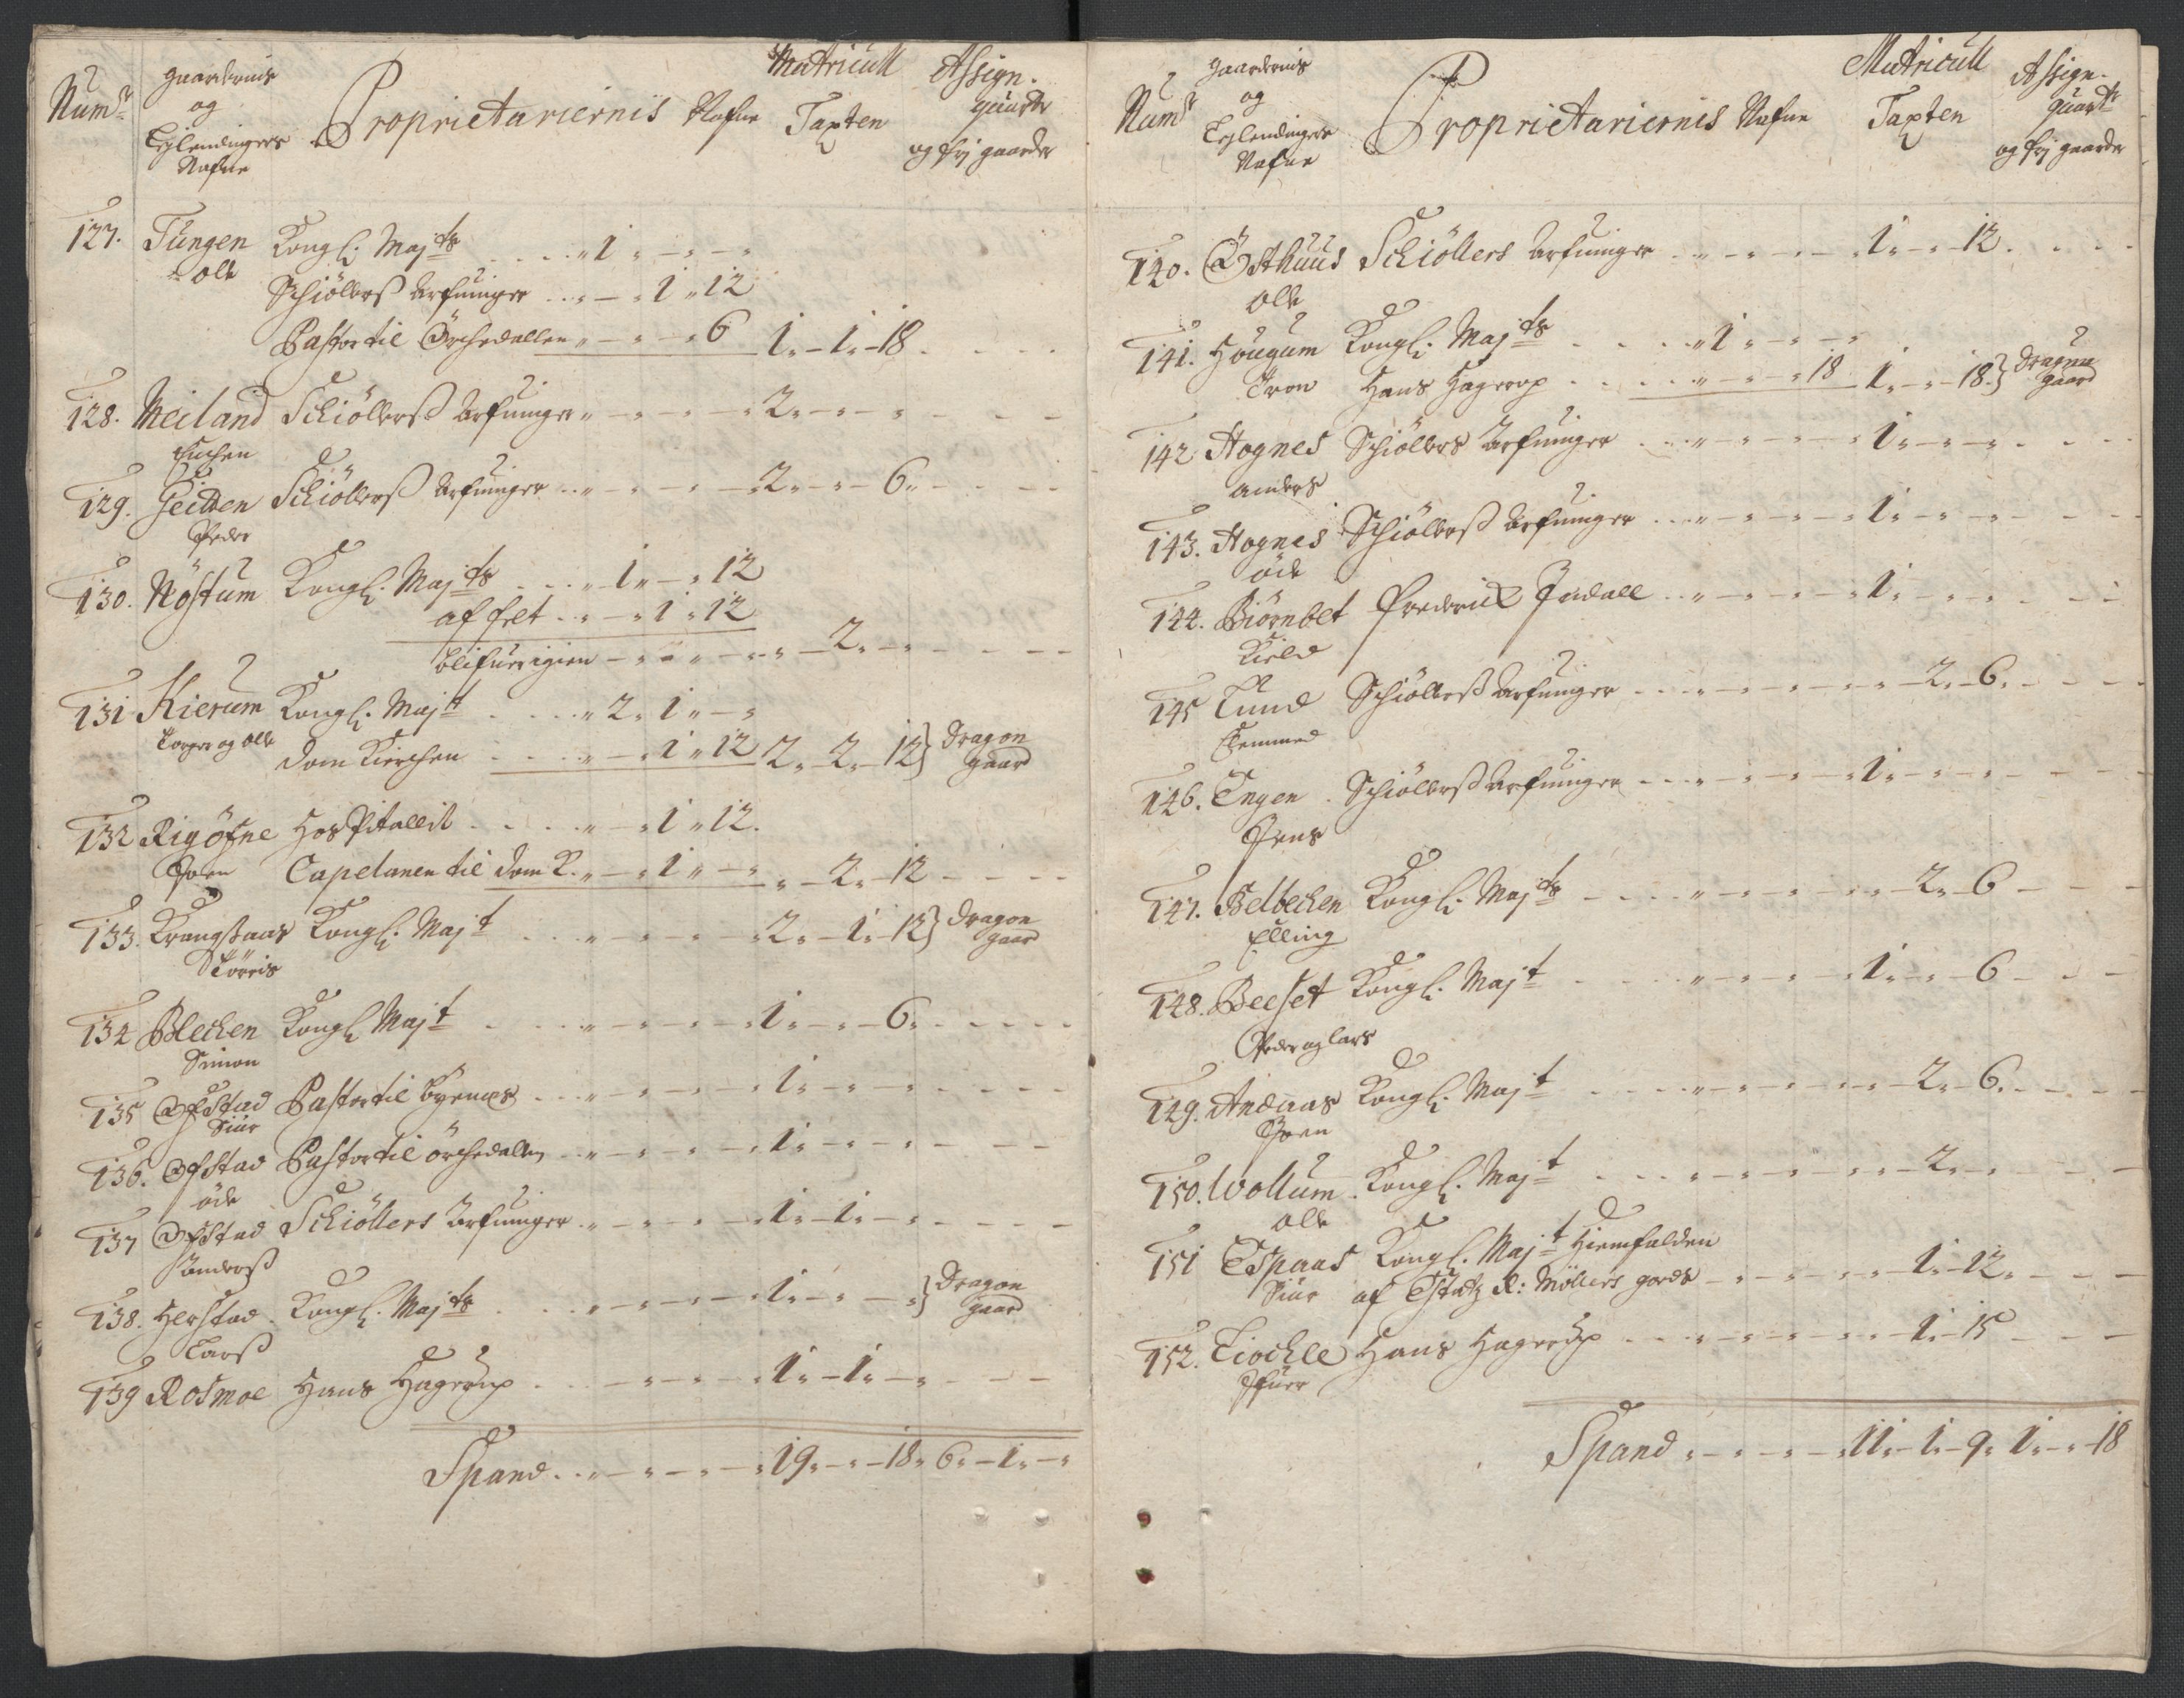 Num.r
gaardernis
og
Leylendingers
Nafne
Proprietariernis Nafne
Matricull
Taxten
Assign.
quarter
og frj gaarder
127. Tüngen Kongl. Majts . . . „ 1 „ – „ – „
Ole Schiöllerß Arfuinger . . „ – „ 1 „ 12
Pastor til Örchedallen „ – „ – „ 6 1. – 1. – 18 . . . .
128. Meiland Schiöllerß Arfuinger „ – „ – „ – „ 2. – „ – „ – – –
129. Geitten Schiöllerß Arfuinger . . „ – „ – „ – 2. – „ – 6. – – –
Peder
130. Nöstum Kongl. Majts . . . „ 1 „ – „ 12
af felt . . „ – „ 1 „ 12
blifuer igien – „ – „ – „ – 2. – „ – – –
131 Kierum Kongl. Majt . . . . „ 2. 1 „ – „
Torger og Ole Dom Kierchen . . . „ – „ 1 „ 12 2. 2. 12} Dragon
gaard
132 Rigöfne Hospitallit . . . . „ – „ 1 „ 12.
Joen Capelanen til Dom K. „ – „ 1 „ – „ „ – 2. – 12 – – –
133. Krangsaas Kongl. Majt . . . „ – „ – „ – „ 2. – 1. – 12} Dragon
gaard
Törris
134 Blechen Kongl. Majt . . . . „ – „ – „ – 1. – „ – 6. – – –
Simon
135 Ofstad Pastor til Byenes . . . „ – „ – „ – 1. – „ – „ – – –
Siur
136. Ofstad Pastor til örchedallen . . „ – „ – „ – 1. – „ – „ – – –
öde
137 Ofstad Schiöllers Arfuinger . „ – „ – „ – 1. – 1. – „ – – –
Anderß
138. Herstad. Kongl. Majts . . . „ – „ – „ – 1. – „ – „} Dragon
gaard
Larß
139 Rosmoe Hans Hagerup . . . „ – „ – „ – 1. – 1. – „ – – –
Spand . . „ – „ – „ – „ 19. – „ – 18. 6. – 1. – „
Num.r
gaardernis
og
Leylendinger
Nafne
Proprietariernis Nafne
Matricull
Taxten
Assign.
quarter
og frj gaarder
140. Östhuus Schiöllers Arfuinger . . „ – „ – „ – „ 1. – „ – 12. . . .
Ole
141. Hougum Kongl. Majts . . . . „ 1 „ – „ – „
Tron Hans Hagerup . . . . „ – „ – „ 18 1. – „ – 18.} Dragon
gaard
142. Hognes Schiöllers Arfuinger . . . „ – „ – „ – „ 1. – „ – „ . . .
Anders
143. Hognes Schiöllerß Arfuinger . . . „ – „ – „ – „ 1. – „ – „ – – –
öde
144. Biörnbet Frederick Indall . . „ – „ – „ – „ 1. – „ – „ – – –
Kield
145 Lund Schiöllerß Arfuinger . . . „ – „ – „ – „ – 2. – 6. – – –
146. Engen. Schiöllerß Arfuinger . . . „ – „ – „ – „ 1. – „ – „ – – –
Jens
147. Belbechen Kongl. Majts . . . . „ – „ – „ – „ – 2. – 6 – – –
Elling
148. Beeset Kongl. Majt . . . . „ – „ – „ – „ 1. – „ – 6 – – –
Peder og Lars
149. Andaas Kongl. Majt . . . . „ – „ – „ – „ – 2. – 6. – – –
Joen
150. Wollum. Kongl. Majt . . . „ – „ – „ – „ – 2. – „ – – –
Ole
151 Espaas Kongl. Majt Hiemfalden
Siur af Etatz R: Möllers gods – „ – „ – „ – 1. – 12. – – –
152. Liochle Hans Hagerup . . . „ – „ – „ – „ – 1. – 15 – – –
Ifuer
Spand „ – „ – „ – „ 11. – 1. – 9. 1. – „ – 18